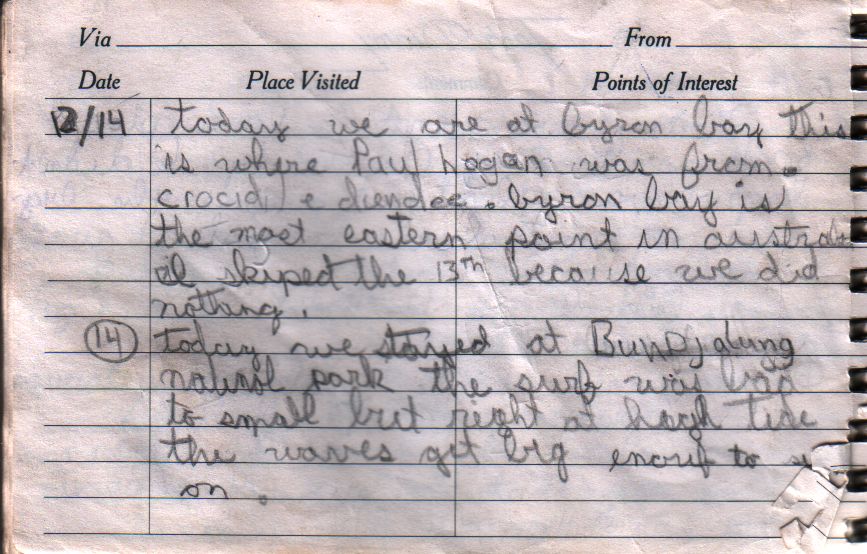 Via From
Date Place Visited Points of Interest
12/14 today we are at byron bay this
is where Paul hogan was from.
crocidile diendee. byron bay is
the most eastern point in australia
il skiped the 13th because we did
nothing.
14 today we stayed at Bundjalung
natural park the surf was bad
to small but reight at haigh tide
the waves get big enouf to
on.